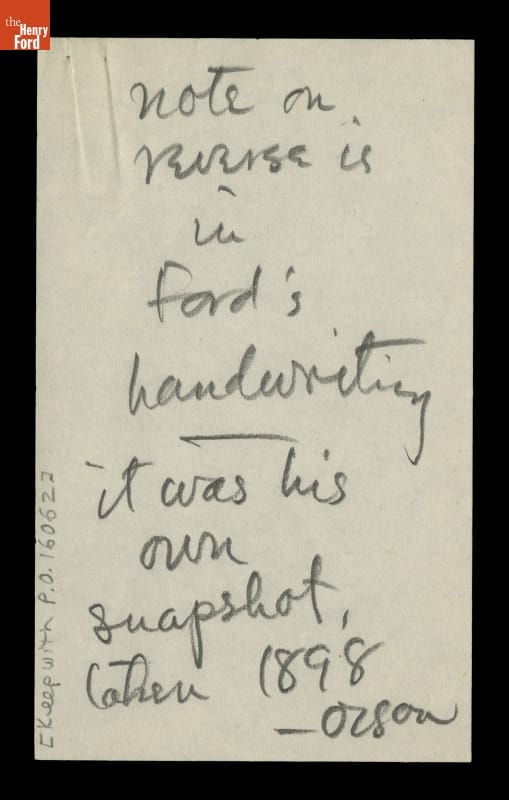 the
Henry
Ford
note on
reverse is
in
Ford's
handwriting
it was his
own
snapshot,
taken 1898
—Orson
[Keep with P.O. 160622]